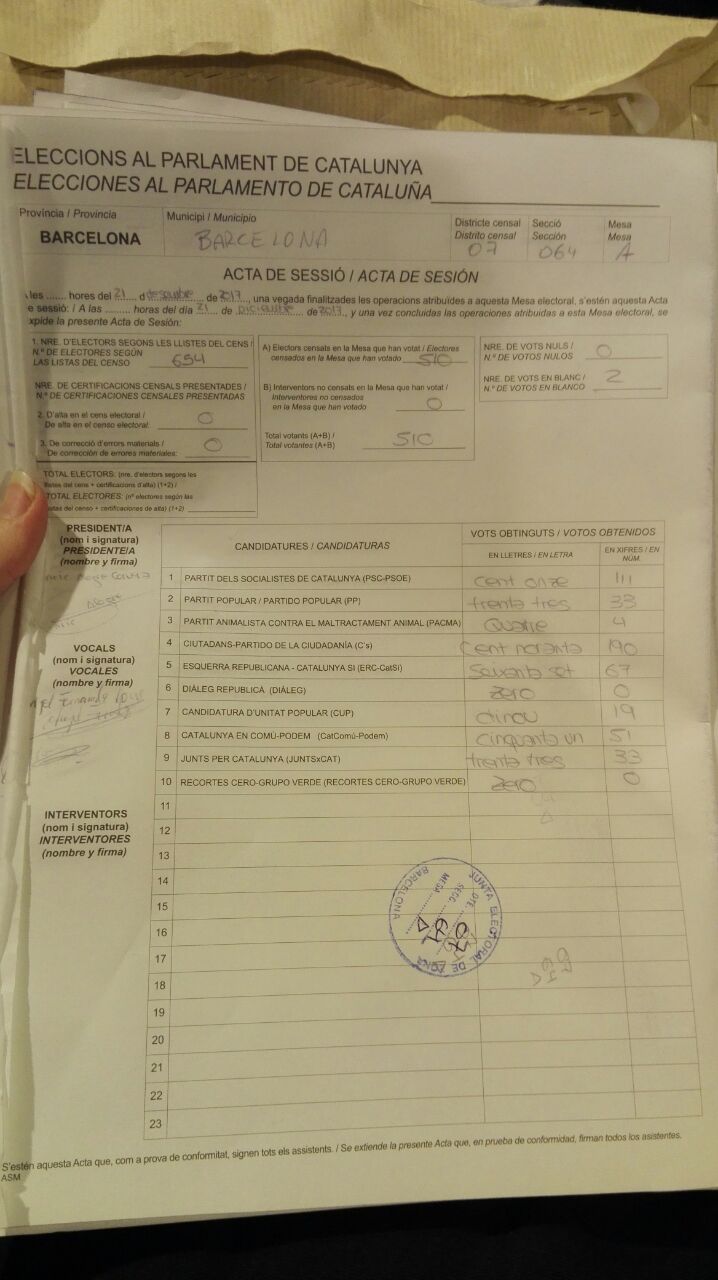 ELECCIONS AL PARLAMENT DE CATALUNYA
ELECCIONES AL PARLAMENTO DE CATALUÑA
Província / Provincia
BARCELONA
Municipi / Municipio
BARCELONA
Districte censal
Distrito censal
07
Secció
Sección
064
Mesa
Mesa
A
ACTA DE SESSIÓ / ACTA DE SESIÓN
les ........ hores del 21 d desembre de 2017, una vegada finalitzades les operacions atribuïdes a aquesta Mesa electoral, s'estén aquesta Acta
e sessió: / A las ......... horas del día 21 de diciembre de 2017, y una vez concluidas las operaciones atribuidas a esta Mesa electoral, se
xpide la presente Acta de Sesión:
1. NRE. D'ELECTORS SEGONS LES LLISTES DEL CENS /
N.º DE ELECTORES SEGÚN
LAS LISTAS DEL CENSO 654
NRE. DE CERTIFICACIONS CENSALS PRESENTADES /
N.º DE CERTIFICACIONES CENSALES PRESENTADAS
2. D'alta en el cens electoral /
De alta en el censo electoral: 0
3. De correcció d'errors materials /
De corrección de errores materiales: 0
TOTAL ELECTORS: (nre. d'electors segons les
llistes del cens + certificacions d'alta) (1+2) /
TOTAL ELECTORES: (nº electores según las
listas del censo + certificaciones de alta) (1+2)
A) Electors censats en la Mesa que han votat / Electores
censados en la Mesa que han votado 510
B) Interventors no censats en la Mesa que han votat /
Interventores no censados
en la Mesa que han votado 0
Total votants (A+B) /
Total votantes (A+B) 510
NRE. DE VOTS NULS /
N.º DE VOTOS NULOS 0
NRE. DE VOTS EN BLANC /
N.º DE VOTOS EN BLANCO 2
PRESIDENT/A
(nom i signatura)
PRESIDENTE/A
(nombre y firma)
VOCALS
(nom i signatura)
VOCALES
(nombre y firma)
INTERVENTORS
(nom i signatura)
INTERVENTORES
(nombre y firma)
CANDIDATURES / CANDIDATURAS
VOTS OBTINGUTS / VOTOS OBTENIDOS
EN LLETRES / EN LETRA
EN XIFRES / EN NÚM.
1 PARTIT DELS SOCIALISTES DE CATALUNYA (PSC-PSOE) cent onze 111
2 PARTIT POPULAR / PARTIDO POPULAR (PP) trenta tres 33
3 PARTIT ANIMALISTA CONTRA EL MALTRACTAMENT ANIMAL (PACMA) Quatre 4
4 CIUTADANS-PARTIDO DE LA CIUDADANÍA (C's) cent noranta 190
5 ESQUERRA REPUBLICANA - CATALUNYA SÍ (ERC-CatSí) Seixanta set 67
6 DIÀLEG REPUBLICÀ (DIÀLEG) zero 0
7 CANDIDATURA D'UNITAT POPULAR (CUP) dinou 19
8 CATALUNYA EN COMÚ-PODEM (CatComú-Podem) cinquanta un 51
9 JUNTS PER CATALUNYA (JUNTSxCAT) trenta tres 33
10 RECORTES CERO-GRUPO VERDE (RECORTES CERO-GRUPO VERDE) zero 0
11
12
13
14
15
16
17
18
19
20
21
22
23
JUNTA ELECTORAL DE ZONA
BARCELONA
DTE. 07
SECC.
MESA A
S'estén aquesta Acta que, com a prova de conformitat, signen tots els assistents. / Se extiende la presente Acta que, en prueba de conformidad, firman todos los asistentes.
ASM